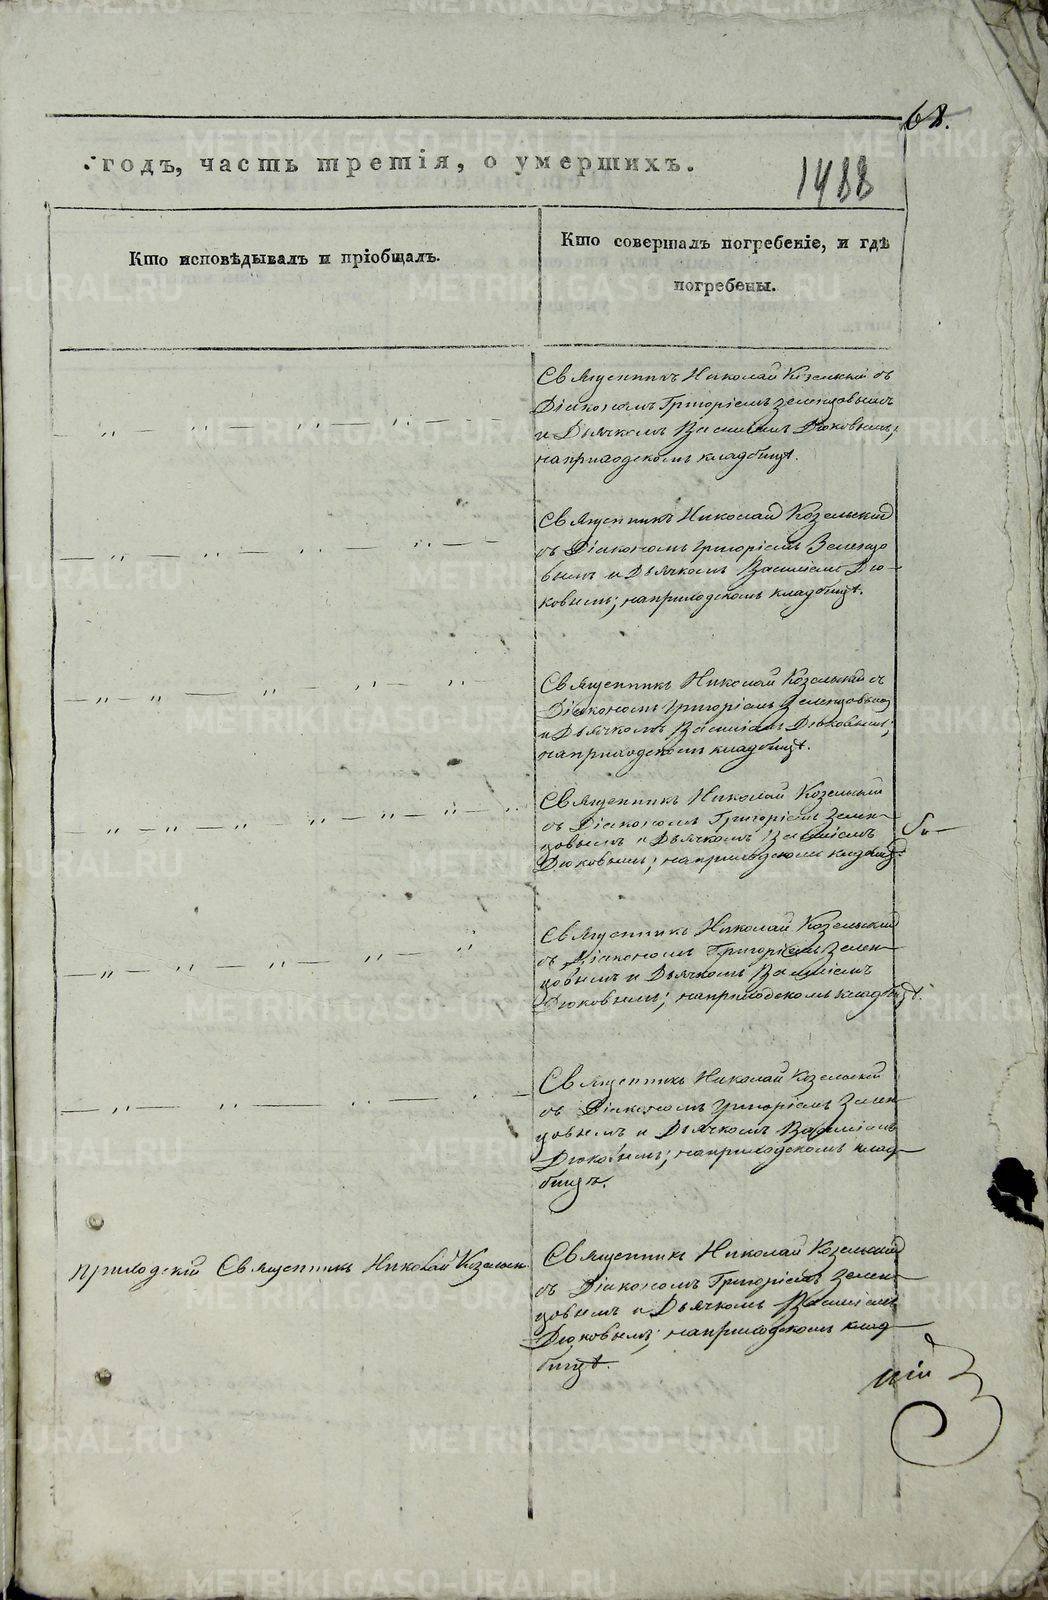 68.
годъ, часть третія, о умершихъ.
1488
Кто исповѣдывалъ и пріобщалъ.
Кто совершалъ погребеніе, и гдѣ
погребены.
Священникъ Николай Козельскій съ
Діакономъ Григоріемъ Зеленцовымъ
и Дьячкомъ Василіемъ Дюковымъ;
на приходскомъ кладбищѣ.
Священникъ Николай Козельскій
съ Діакономъ Григоріемъ Зеленцо
вымъ и Дьячкомъ Василіемъ Дю-
ковымъ; на приходскомъ кладбищѣ.
Священникъ Николай Козельскій съ
Діакономъ Григоріемъ Зеленцовымъ
и Дьячкомъ Василіемъ Дюковымъ;
на приходскомъ кладбищѣ.
Священникъ Николай Козельскій
съ Діакономъ Григоріемъ Зелен-
цовымъ и Дьячкомъ Василіемъ
Дюковымъ; на приходскомъ кладбищѣ.
Священникъ Николай Козельскій
съ Діакономъ Григоріемъ Зелен-
цовымъ и Дьячкомъ Василіемъ
Дюковымъ; на приходскомъ кладбищѣ.
Священникъ Николай Козельскій
съ Діакономъ Григоріемъ Зелен
цовымъ и Дьячкомъ Василіемъ
Дюковымъ; на приходскомъ клад-
бищѣ.
приходскій Священникъ Николай Козельск
Священникъ Николай Козельскій
съ Діакономъ Григоріемъ Зелен-
цовымъ и Дьячкомъ Василіемъ
Дюковымъ; на приходскомъ клад-
бищѣ.
METRIKI.GASO-URAL.RU